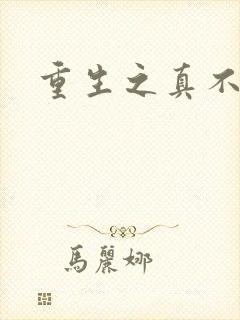 重生之真不
馬麗娜